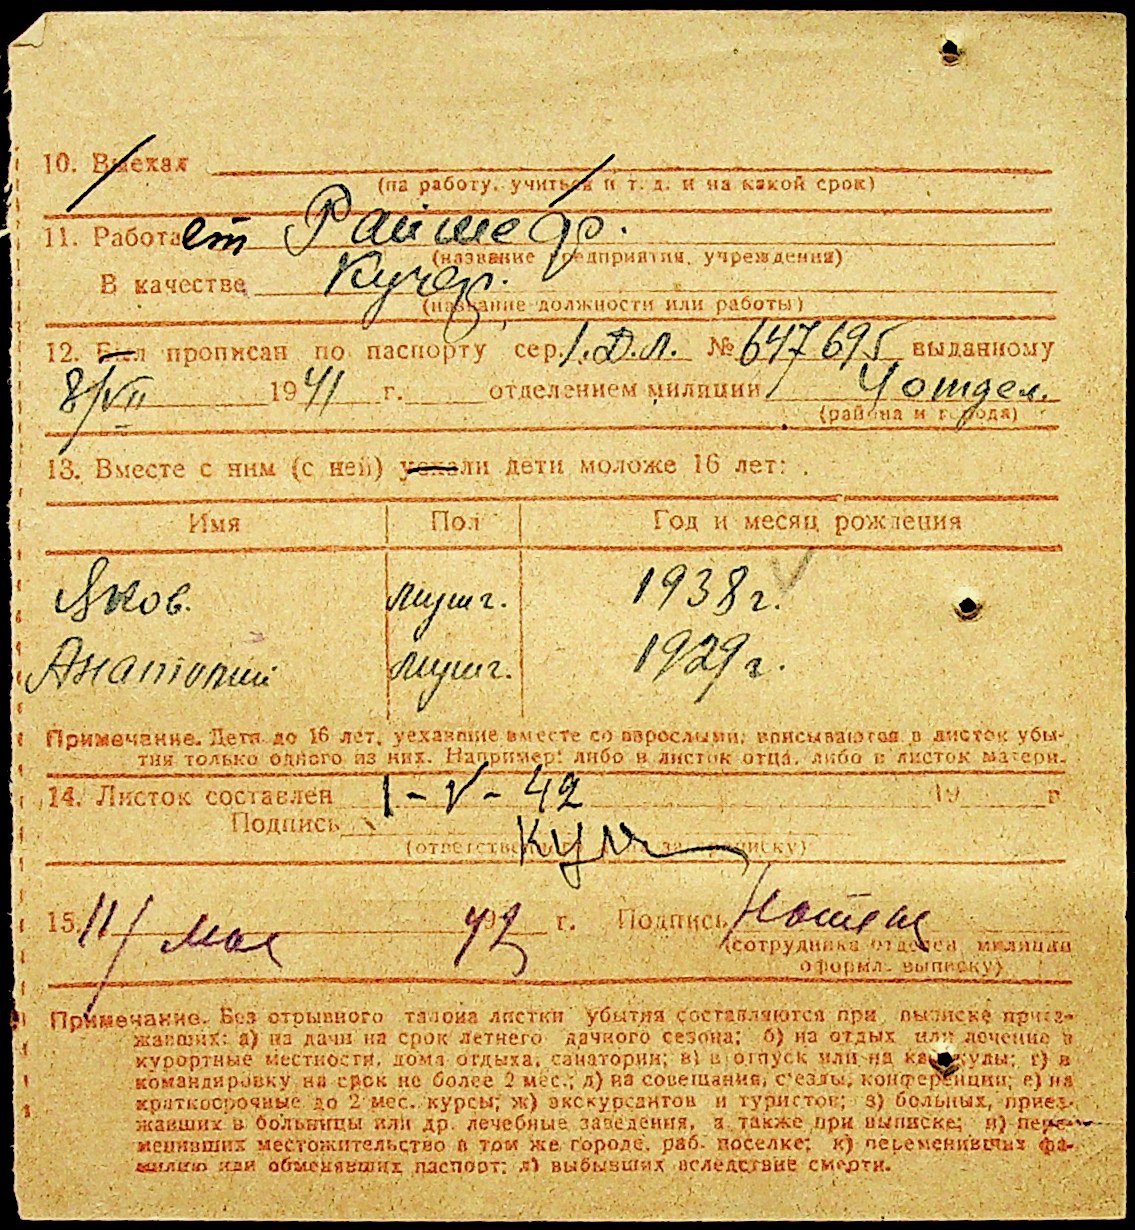 10. Выехал
(на работу, учиться и т. д. и на какой срок)
11. Работает
(название предприятия, учреждения)
В качестве Кучер.
(название должности или работы)
12. Был прописан по паспорту сер. I.Д.Л. № 647695 выданному
8/VII 1941 г. отделением милиции 4 отдел.
(района и города)
13. Вместе с ним (с ней) уехали дети моложе 16 лет:
Имя Пол Год и месяц рождения
Яков. мужг. 1938 г.
Анатолий мужг. 1929 г.
Примечание. Дети до 16 лет, уехавшие вместе со взрослыми, вписываются в листок убы-
тия только одного из них. Например: либо в листок отца, либо в листок матери.
14. Листок составлен 1-V-42 19 г.
Подпись
(ответственного за прописку)
15. 11/ мая 1942 г. Подпись
(сотрудника отделен. милиции
оформл. выписку)
Примечание. Без отрывного талона листки убытия составляются при выписке приез-
жавших: а) на дачи на срок летнего дачного сезона; б) на отдых или лечение в
курортные местности, дома отдыха, санатории; в) в отпуск или на каникулы; г) в
командировку на срок не более 2 мес.; д) на совещания, с'езды, конференции; е) на
краткосрочные до 2 мес. курсы; ж) экскурсантов и туристов; з) больных, приез-
жавших в больницы или др. лечебные заведения, а также при выписке; и) пере-
менивших местожительство в том же городе, раб. поселке; к) переменивших фа-
милию или обменявших паспорт; л) выбывших вследствие смерти.